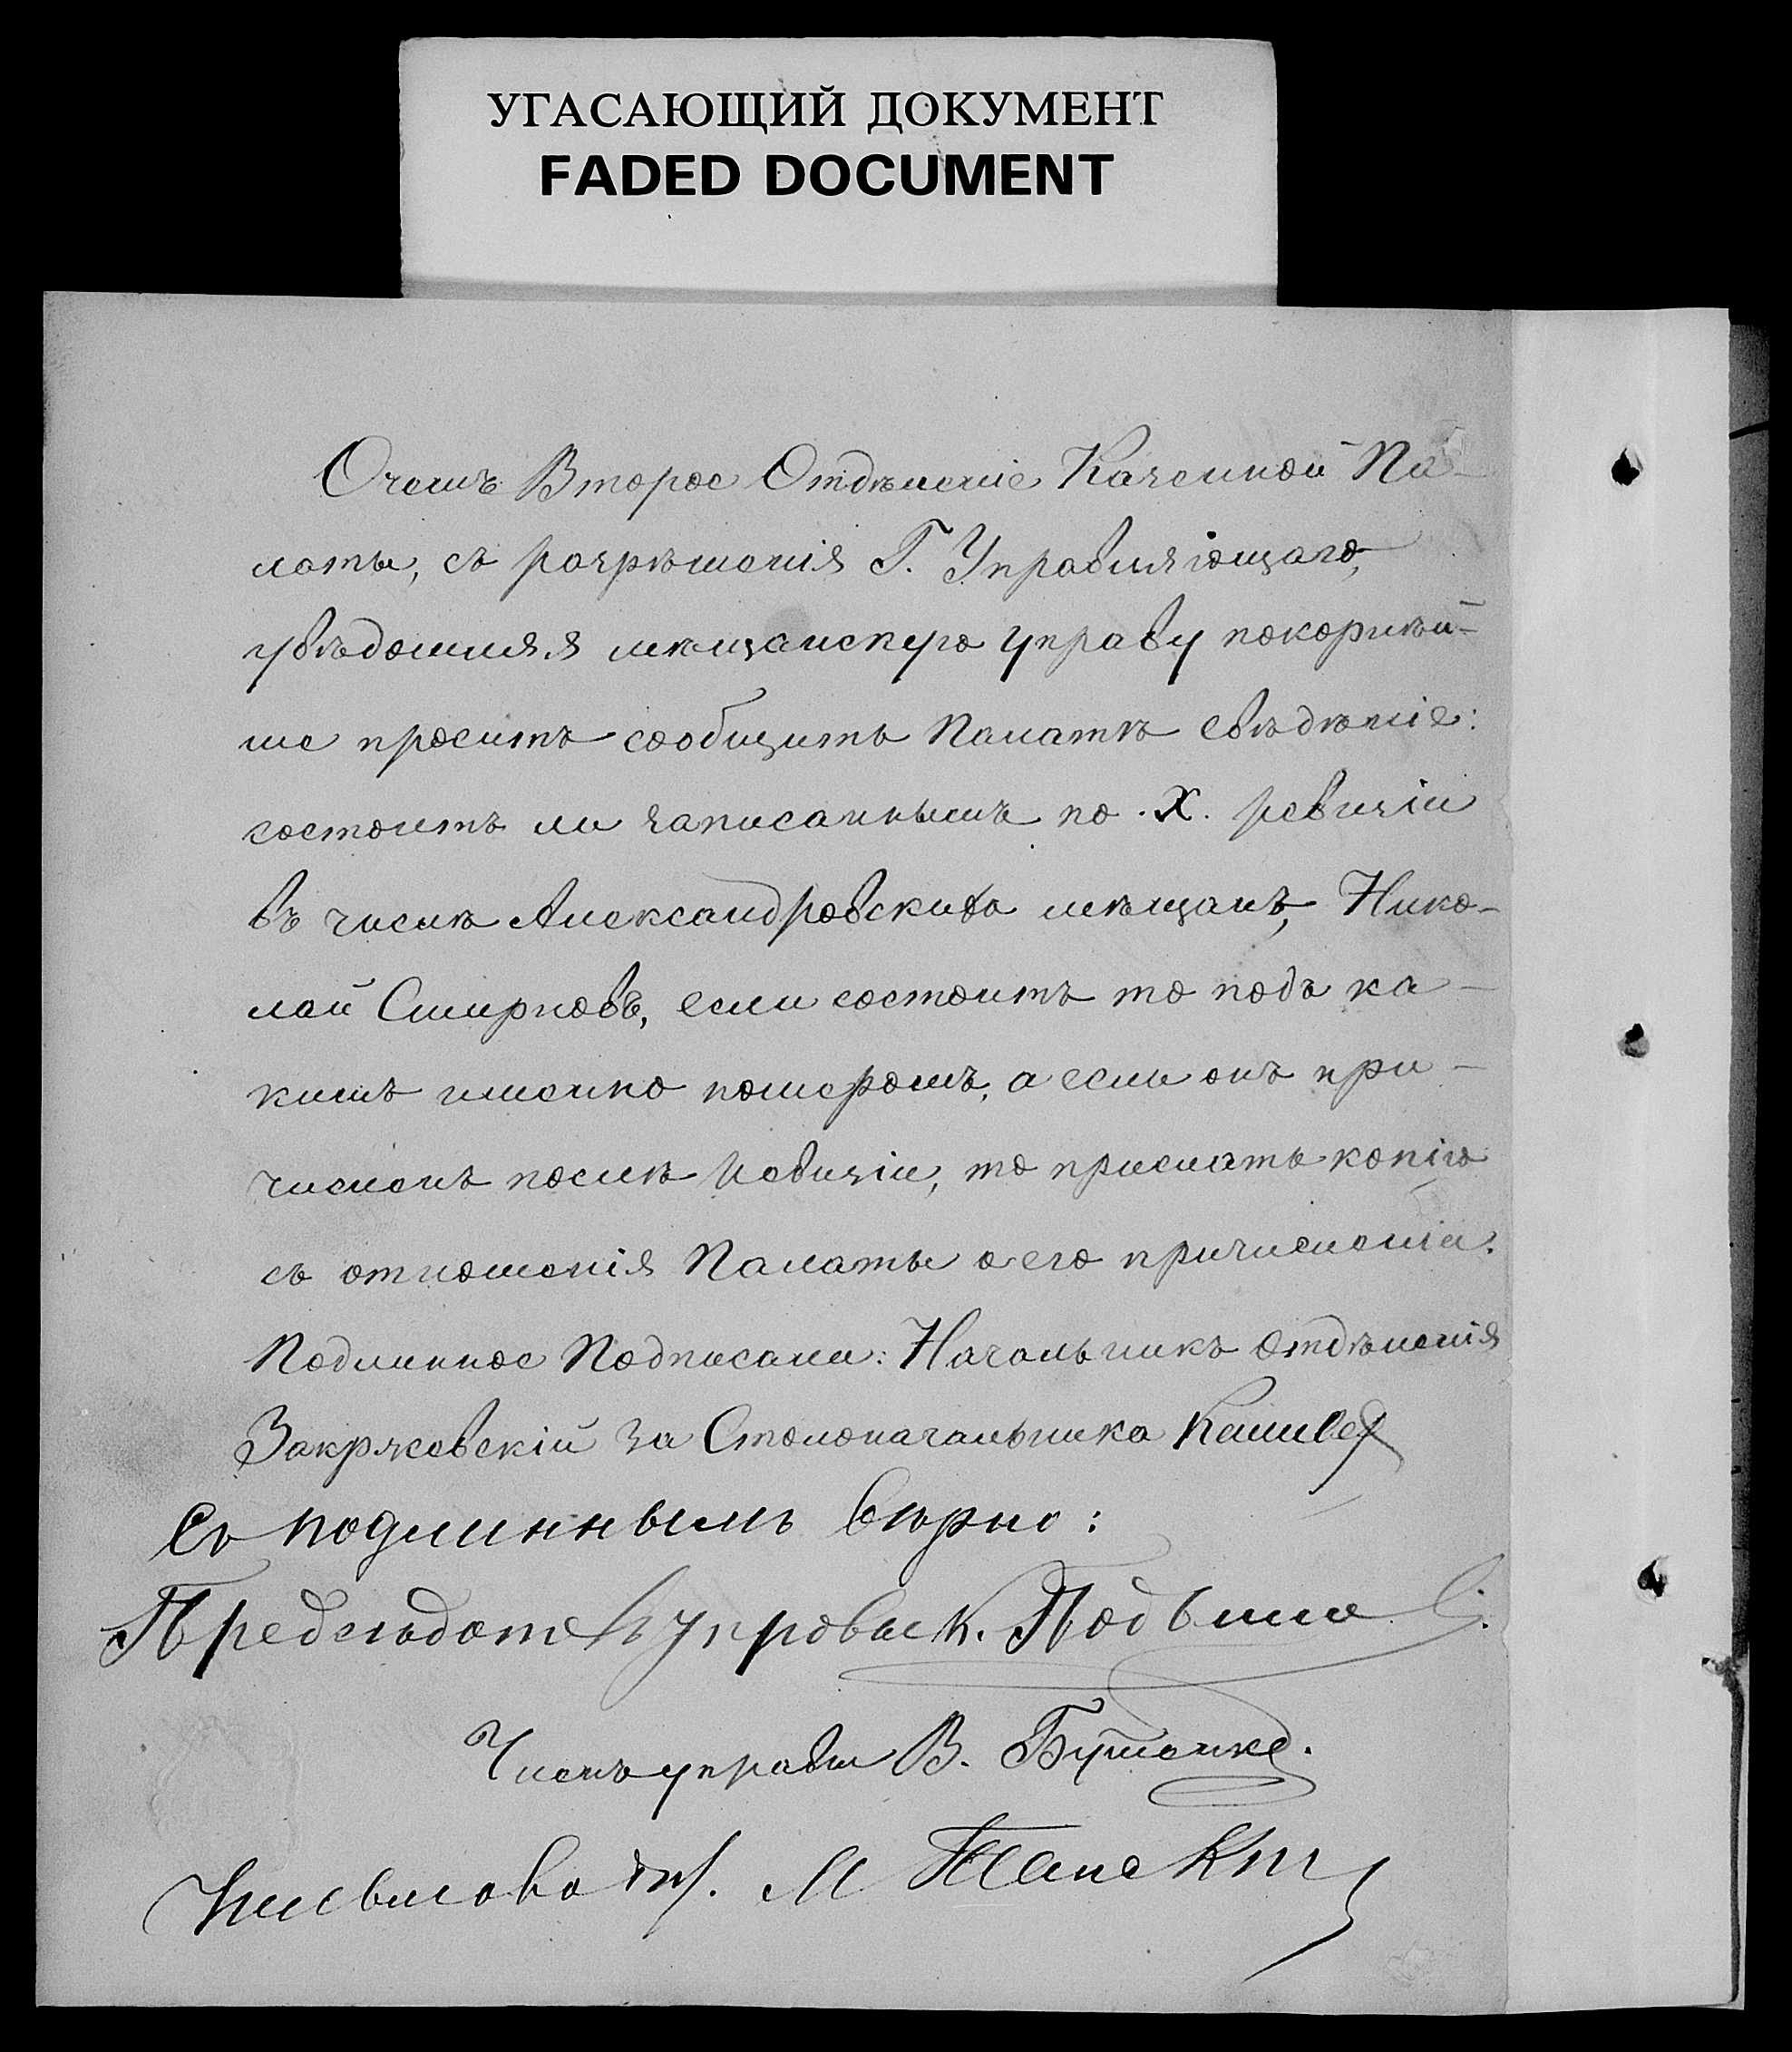 УГАСАЮЩИЙ ДОКУМЕНТ
FADED DOCUMENT
О чемъ Второе Отдѣленіе Казенной Па-
латы, съ разрѣшенія Г. Управляющаго,
увѣдомляя мѣщанскую управу покорнѣй-
ше проситъ сообщить Палатѣ свѣдѣніе:
состоитъ ли записаннымъ по X. ревизіи
въ числѣ Александровскихъ мѣщанъ, Нико-
лай Смирновъ, если состоитъ то подъ ка-
кимъ именно номеромъ, а если онъ при-
численъ послѣ ревизіи, то прислать копію
съ отношенія Палаты о его причисленіи.
Подлинное Подписали: Начальникъ Отдѣленія
Закржевскій за Столоначальника
Съ подлиннымъ вѣрно:
Предсѣдатель управы К.
Членъ управы В.
Письмовод. М